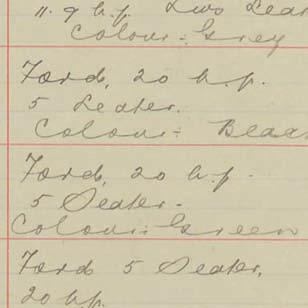 11.9 h.p. Two Seat
Colour: Grey
Ford, 20 h.p.
5 Seater.
Colour: Blac
Ford, 20 h.p.
5 Seater.
Colour: Green
Ford 5 Seater,
20 h.p.